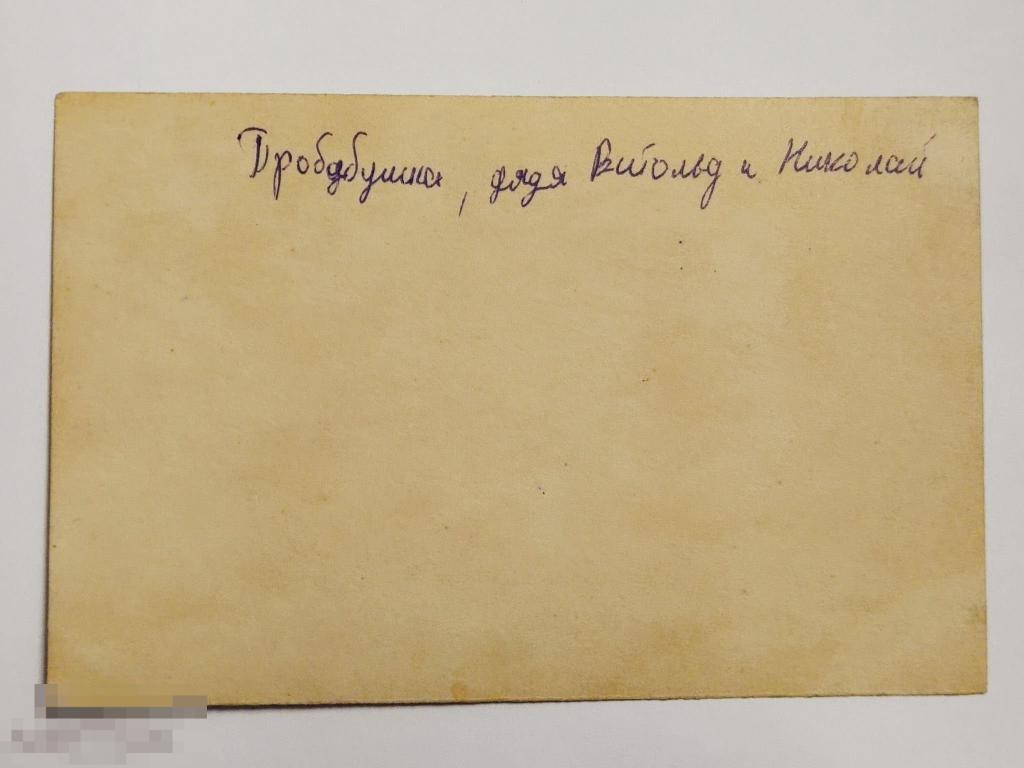 Пробабушка, дядя Витольд и Николай